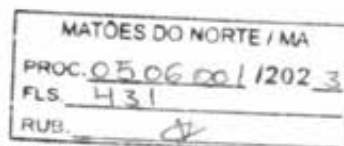 MATÕES DO NORTE / MA
PROC. 0506001 /2023
FLS. 431
RUB.